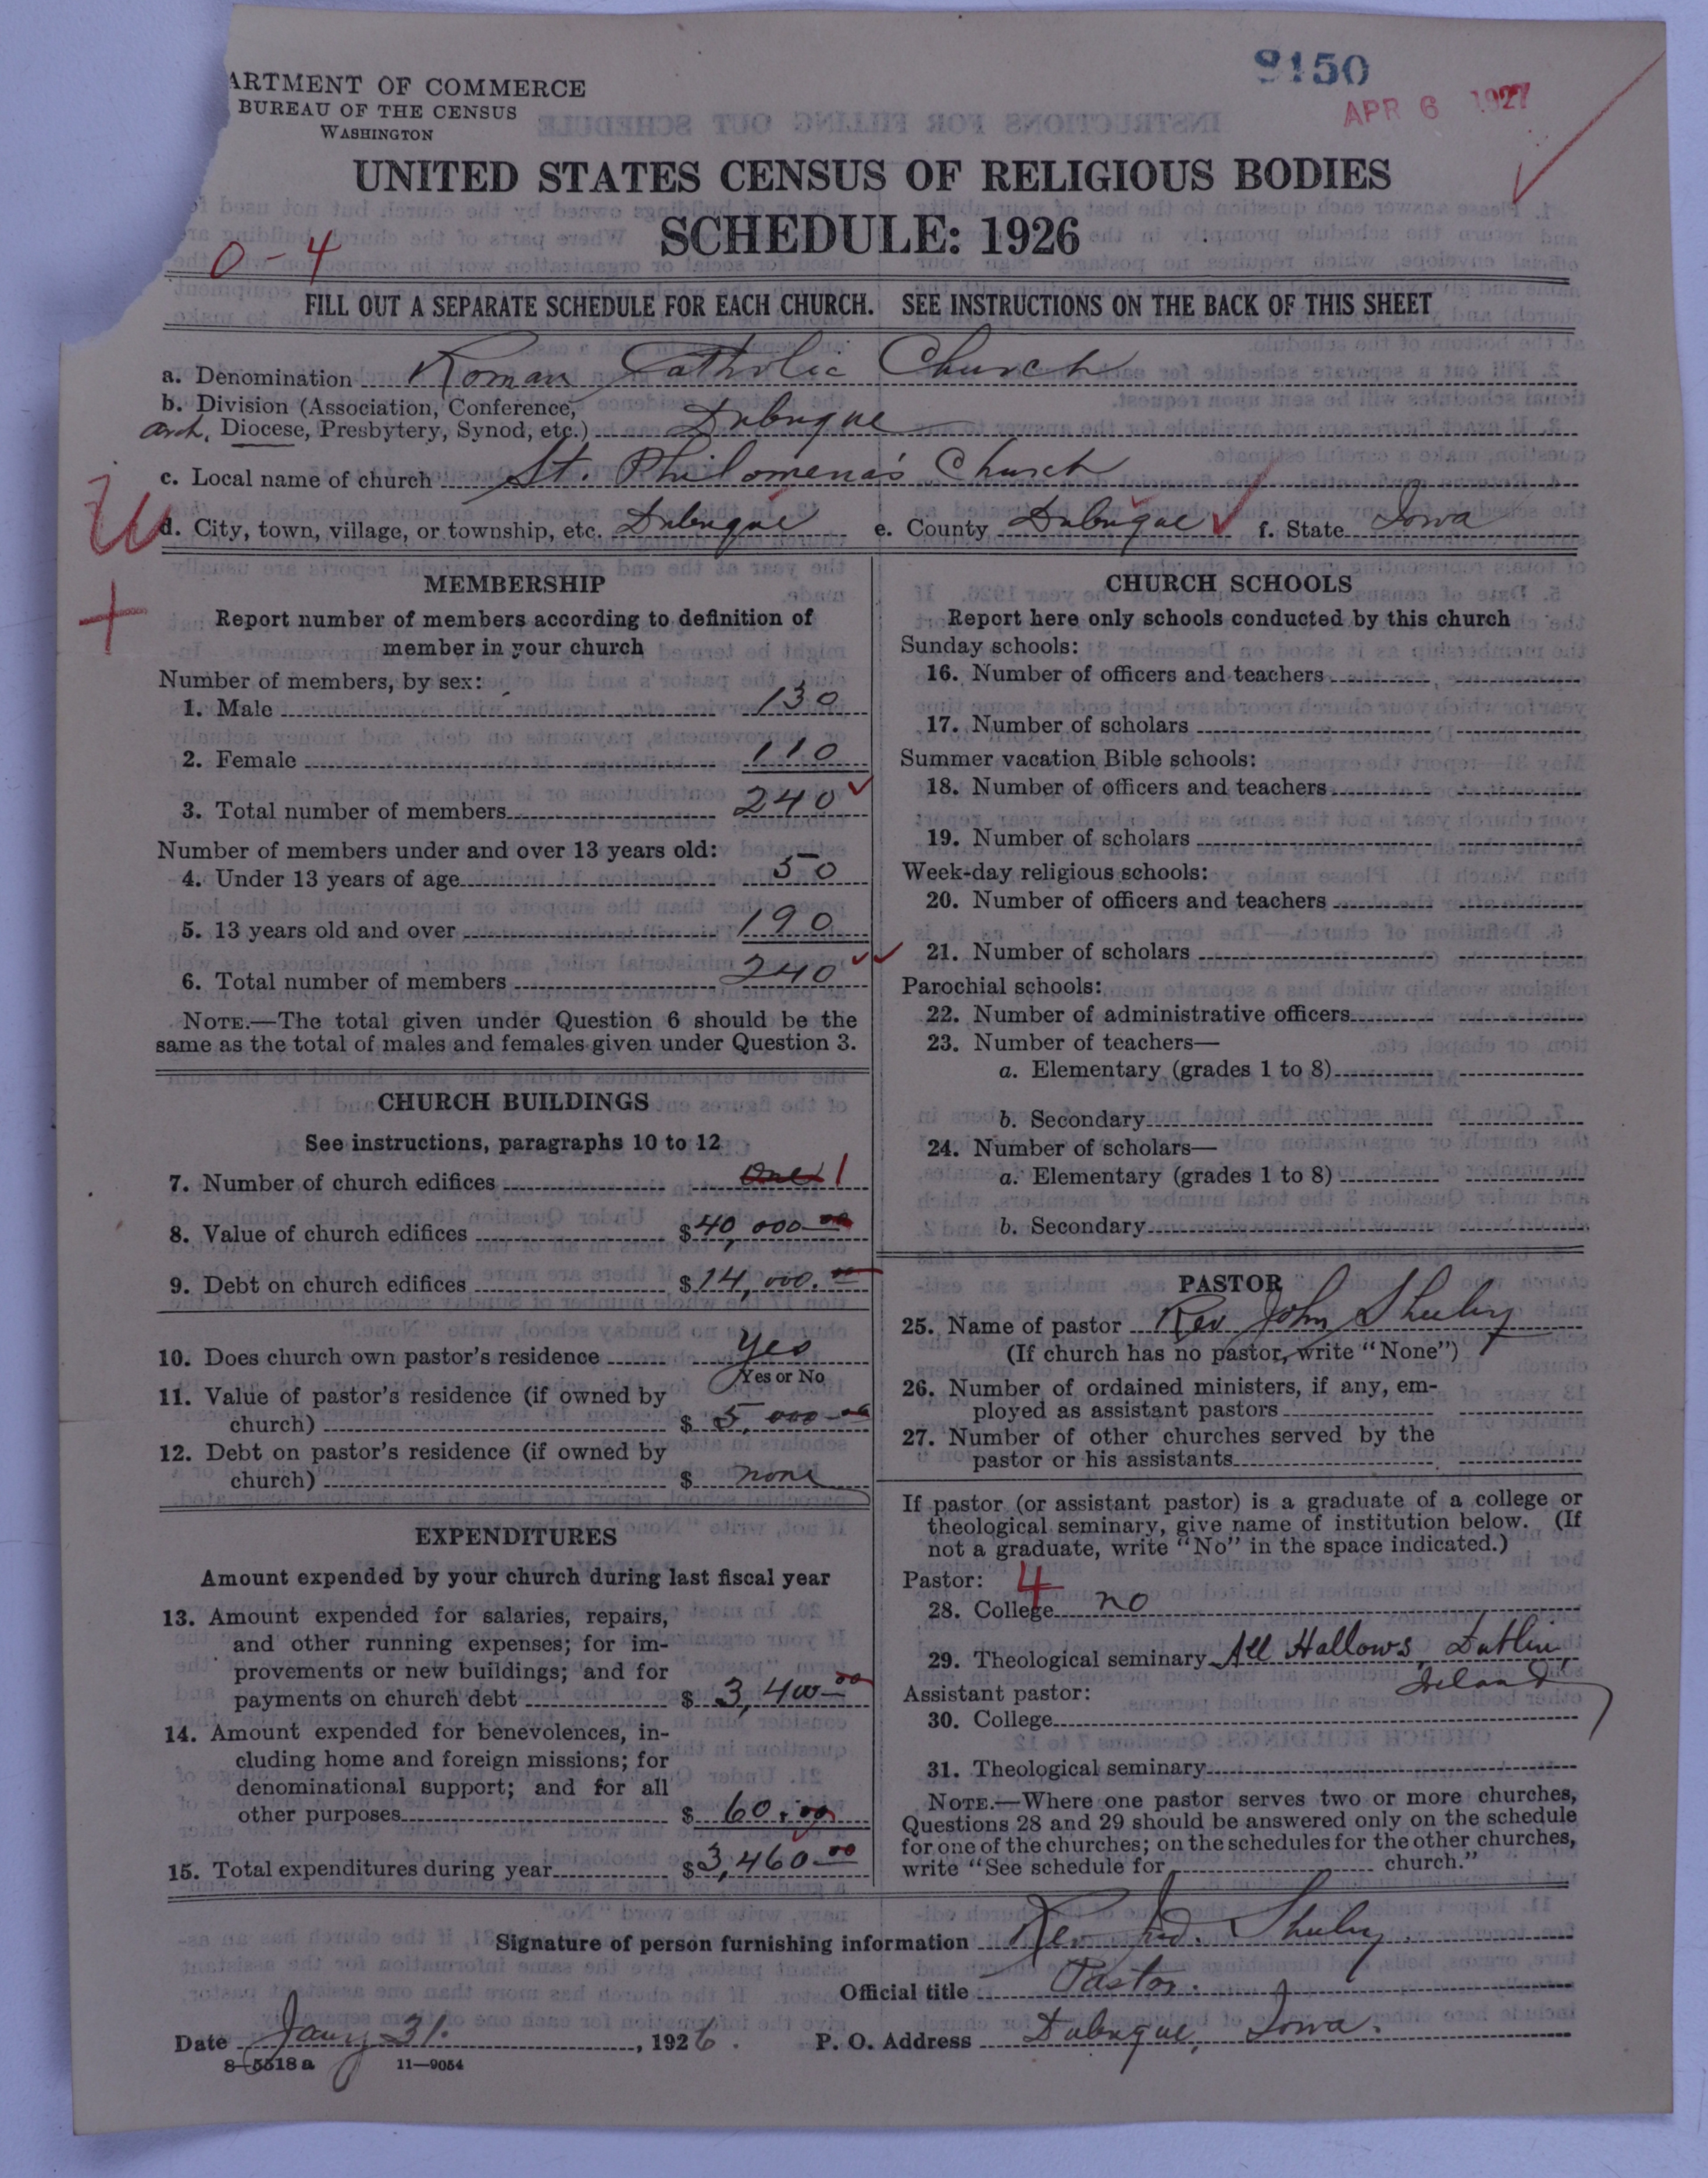 9150
APR 6 1927
ARTMENT OF COMMERCE
BUREAU OF THE CENSUS
WASHINGTON
UNITED STATES CENSUS OF RELIGIOUS BODIES
SCHEDULE: 1926
0-4
FILL OUT A SEPARATE SCHEDULE FOR EACH CHURCH. SEE INSTRUCTIONS ON THE BACK OF THIS SHEET
a. Denomination Roman Catholic Church
b. Division (Association, Conference,
Arch, Diocese, Presbytery, Synod, etc.) Dubuque
c. Local name of church St. Philomena's Church
d. City, town, village, or township, etc. Dubuque e. County Dubuque f. State Iowa
MEMBERSHIP
Report number of members according to definition of
member in your church
Number of members, by sex:
1. Male 130
2. Female 110
3. Total number of members 240
Number of members under and over 13 years old:
4. Under 13 years of age 50
5. 13 years old and over 190
6. Total number of members 240
NOTE.—The total given under Question 6 should be the
same as the total of males and females given under Question 3.
CHURCH BUILDINGS
See instructions, paragraphs 10 to 12
7. Number of church edifices One 1
8. Value of church edifices $40,000.00
9. Debt on church edifices $14,000.00
10. Does church own pastor's residence Yes
Yes or No
11. Value of pastor's residence (if owned by
church) $ 5,000.00
12. Debt on pastor's residence (if owned by
church) $ none
EXPENDITURES
Amount expended by your church during last fiscal year
13. Amount expended for salaries, repairs,
and other running expenses; for im-
provements or new buildings; and for
payments on church debt $ 3,400.00
14. Amount expended for benevolences, in-
cluding home and foreign missions; for
denominational support; and for all
other purposes $ 60.00
15. Total expenditures during year $3,460.00
CHURCH SCHOOLS
Report here only schools conducted by this church
Sunday schools:
16. Number of officers and teachers
17. Number of scholars
Summer vacation Bible schools:
18. Number of officers and teachers
19. Number of scholars
Week-day religious schools:
20. Number of officers and teachers
21. Number of scholars
Parochial schools:
22. Number of administrative officers
23. Number of teachers—
a. Elementary (grades 1 to 8)
b. Secondary
24. Number of scholars—
a. Elementary (grades 1 to 8)
b. Secondary
PASTOR
25. Name of pastor Rev John Sheehy
(If church has no pastor, write "None")
26. Number of ordained ministers, if any, em-
ployed as assistant pastors
27. Number of other churches served by the
pastor or his assistants
If pastor (or assistant pastor) is a graduate of a college or
theological seminary, give name of institution below. (If
not a graduate, write "No" in the space indicated.)
Pastor: 4
28. College no
29. Theological seminary All Hallows, Dublin,
Ireland
Assistant pastor:
30. College
31. Theological seminary
NOTE.—Where one pastor serves two or more churches,
Questions 28 and 29 should be answered only on the schedule
for one of the churches; on the schedules for the other churches,
write "See schedule for church."
Signature of person furnishing information Rev. Jno. Sheehy.
Official title Pastor.
Date Jany 31. , 1926. P. O. Address Dubuque, Iowa.
8-5518 a 11-9054